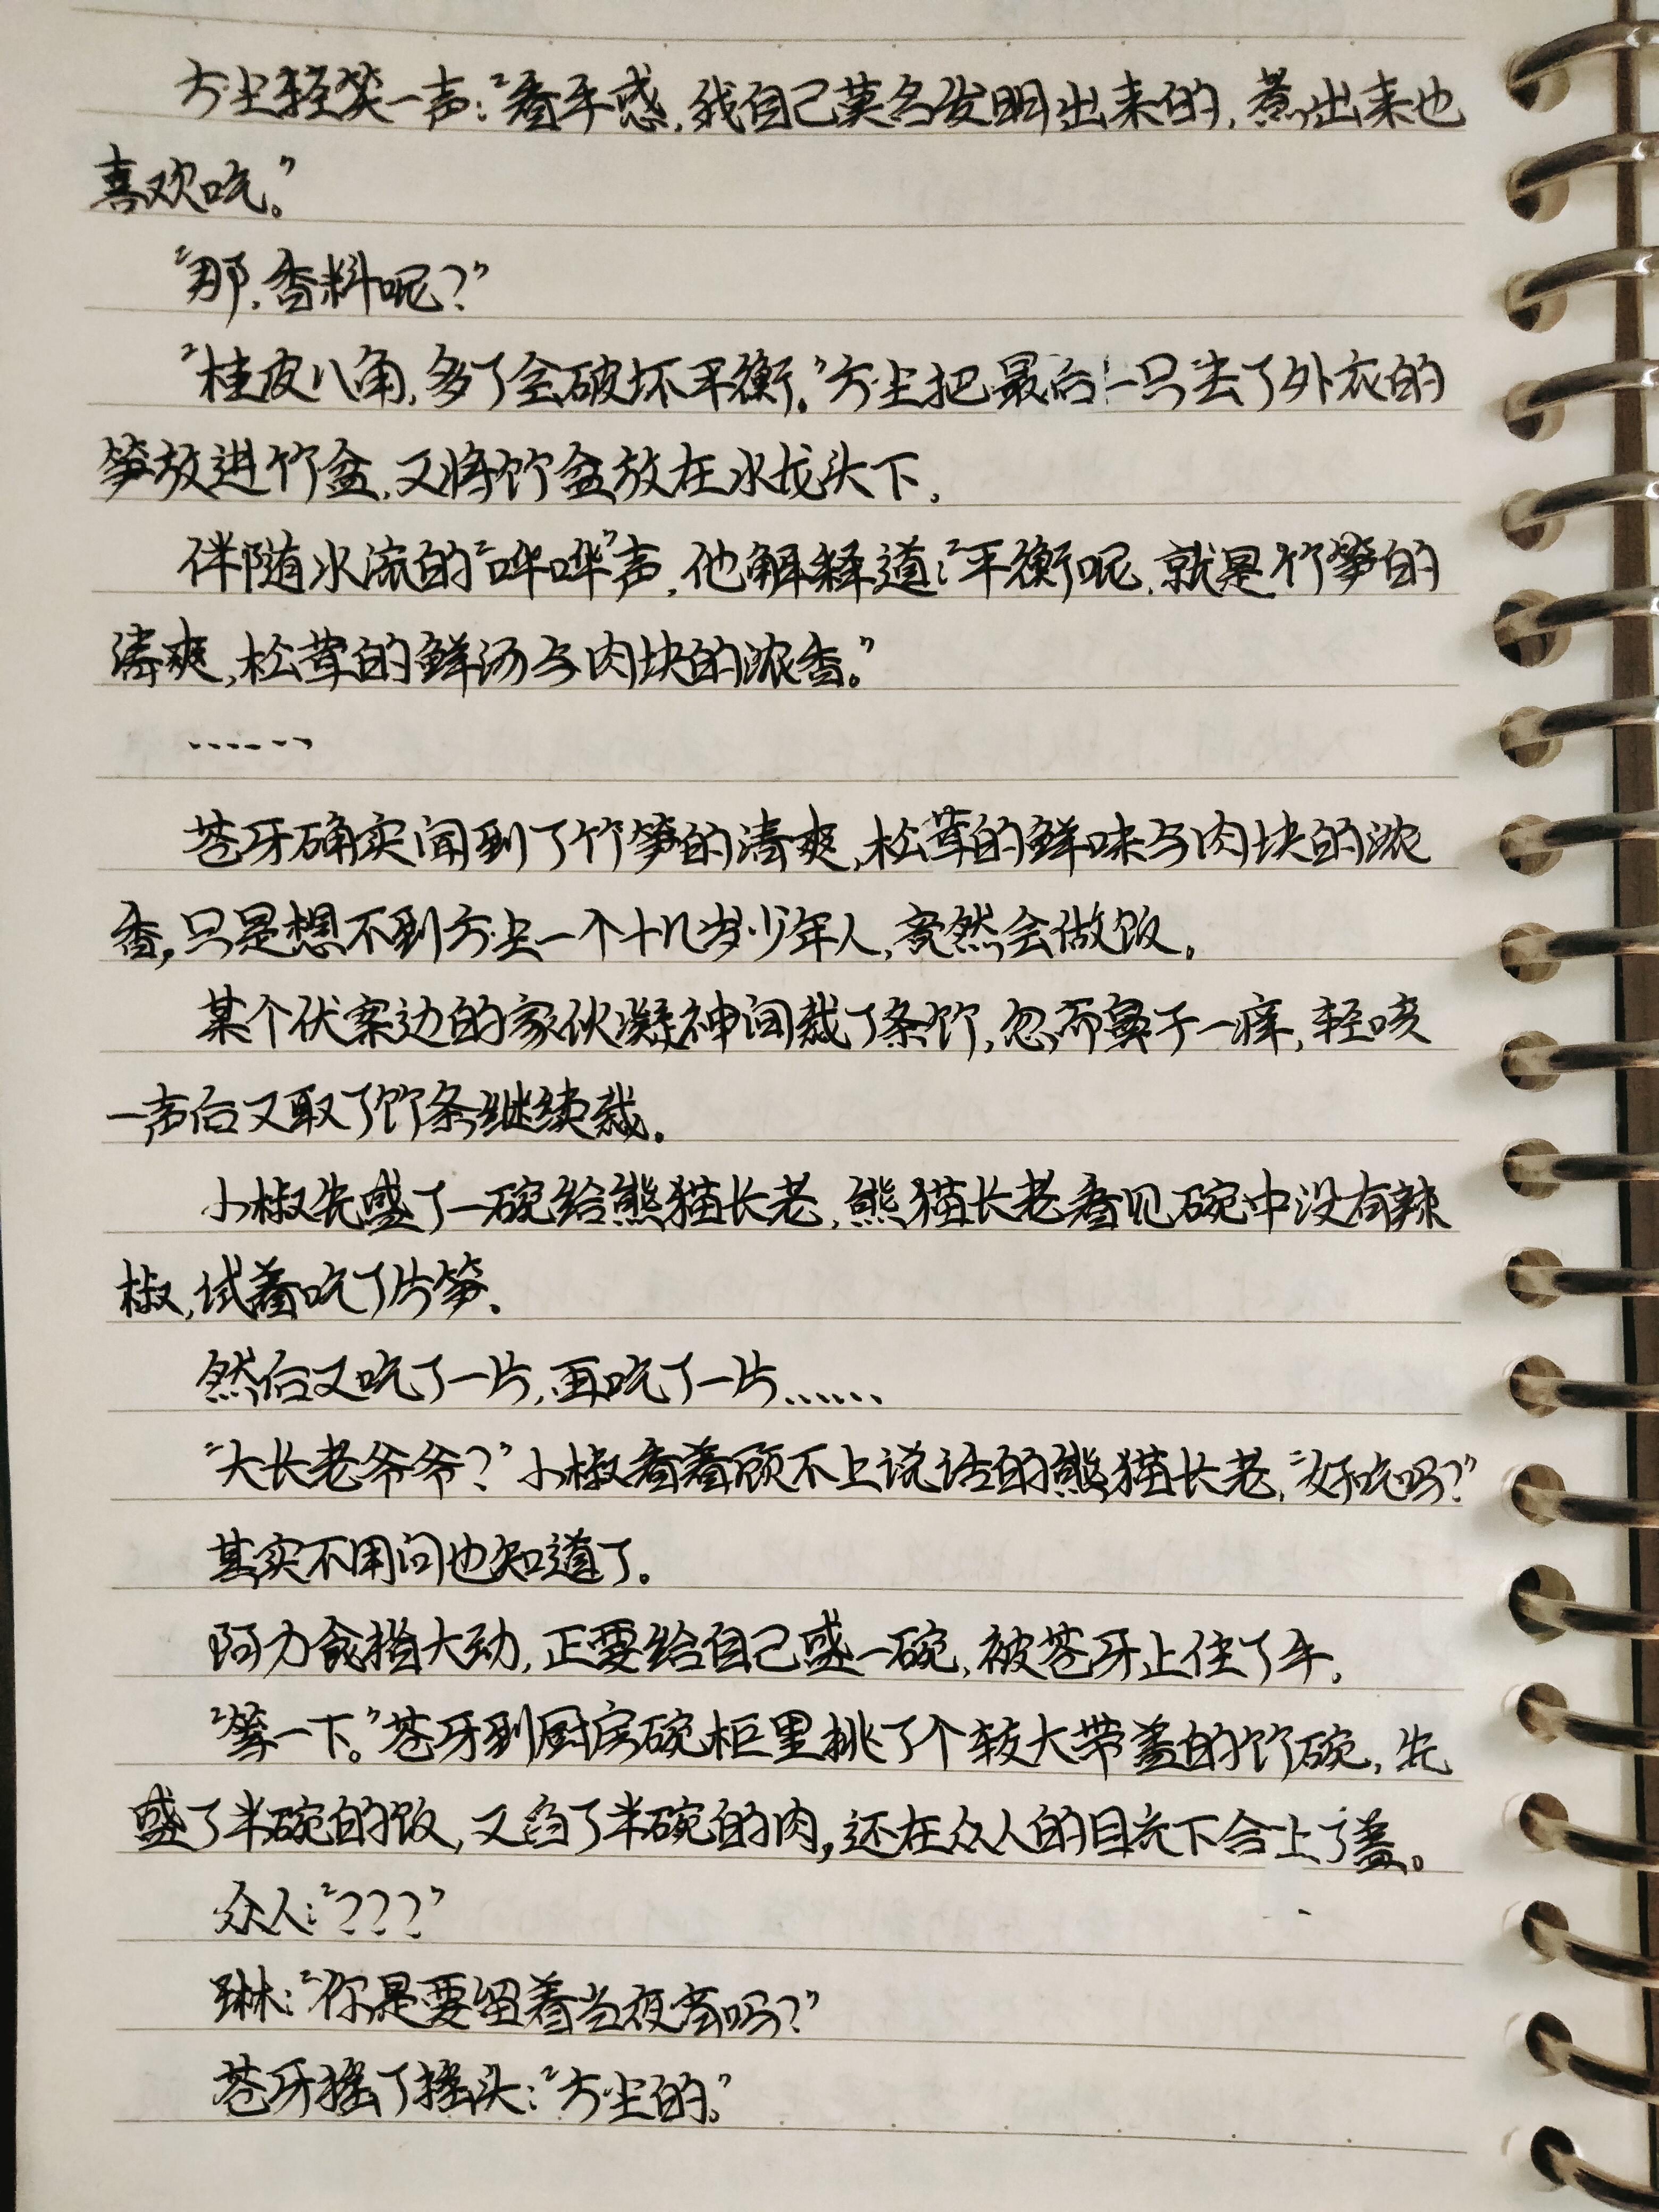 方尘轻笑一声：“看手感，我自己莫名发明出来的，煮出来也
喜欢吃。”
“那，香料呢？”
“桂皮八角，多了会破坏平衡。”方尘把最后一只去了外衣的
笋放进竹盆，又将竹盆放在水龙头下。
伴随水流的“哗哗”声，他解释道：“平衡呢，就是竹笋的
清爽，松茸的鲜汤与肉块的浓香。”
……
苍牙确实闻到了竹笋的清爽，松茸的鲜味与肉块的浓
香，只是想不到方尘一个十几岁少年人，竟然会做饭。
某个伏案边的家伙凝神间裁了条竹，忽而鼻子一痒，轻咳
一声后又取了竹条继续裁。
小椒先盛了一碗给熊猫长老，熊猫长老看见碗中没有辣
椒，试着吃了片笋。
然后又吃了一片，再吃了一片……
“大长老爷爷？”小椒看着顾不上说话的熊猫长老，“好吃吗？”
其实不用问也知道了。
阿力食指大动，正要给自己盛一碗，被苍牙止住了手。
“等一下。”苍牙到厨房碗柜里挑了个较大带盖的竹碗，先
盛了半碗的饭，又舀了半碗的肉，还在众人的目光下合上了盖。
众人：“？？？”
琳：“你是要留着当夜宵吗？”
苍牙摇了摇头：“方尘的。”